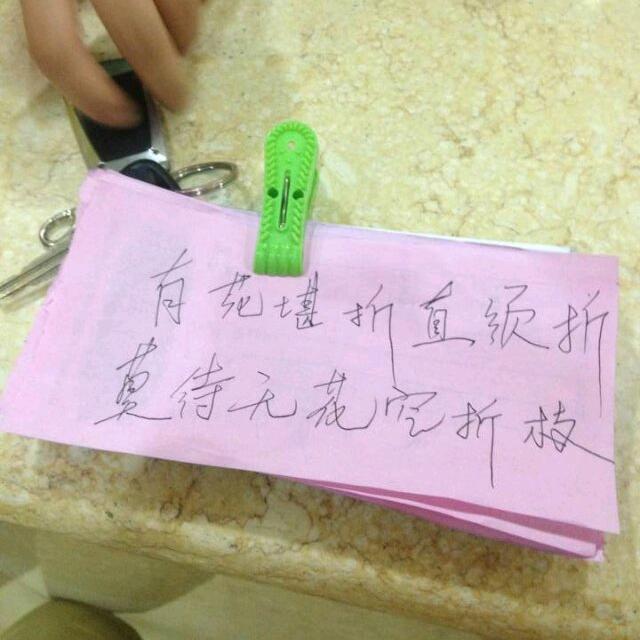 有花堪折直须折
莫待无花空折枝